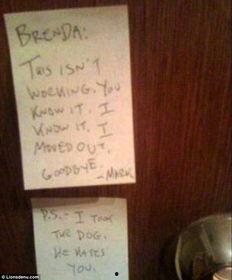 BRENDA:
THIS ISN'T
WORKING. YOU
KNOW IT. I
KNOW IT. I
MOVED OUT.
GOODBYE.
- MARK
P.S. - I TOOK
THE DOG.
HE HATES
YOU.
© Lionsdenu.com